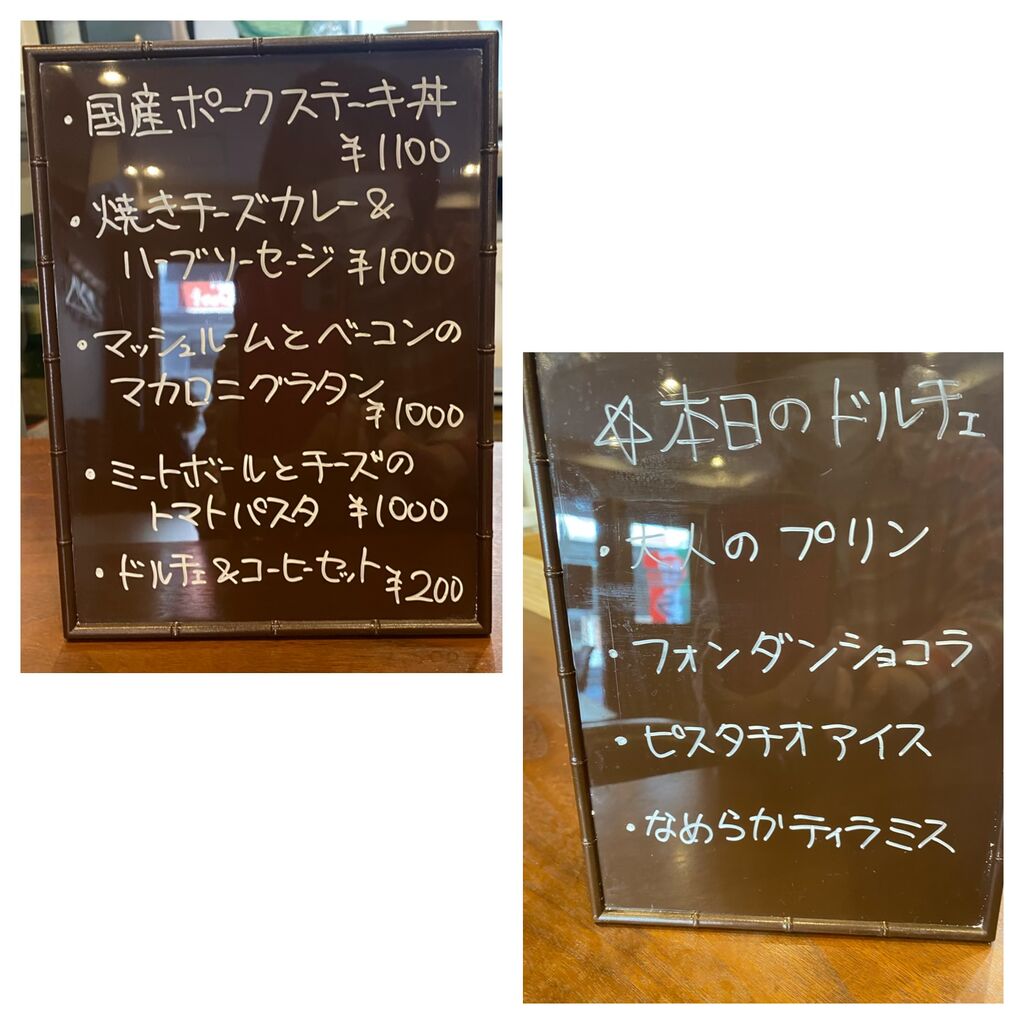 ・国産ポークステーキ丼
¥1100
・焼きチーズカレー&
ハーブソーセージ ¥1000
・マッシュルームとベーコンの
マカロニグラタン
¥1000
・ミートボールとチーズの
トマトパスタ ¥1000
・ドルチェ&コーヒーセット ¥200
☆本日のドルチェ
・大人のプリン
・フォンダンショコラ
・ピスタチオアイス
・なめらかティラミス